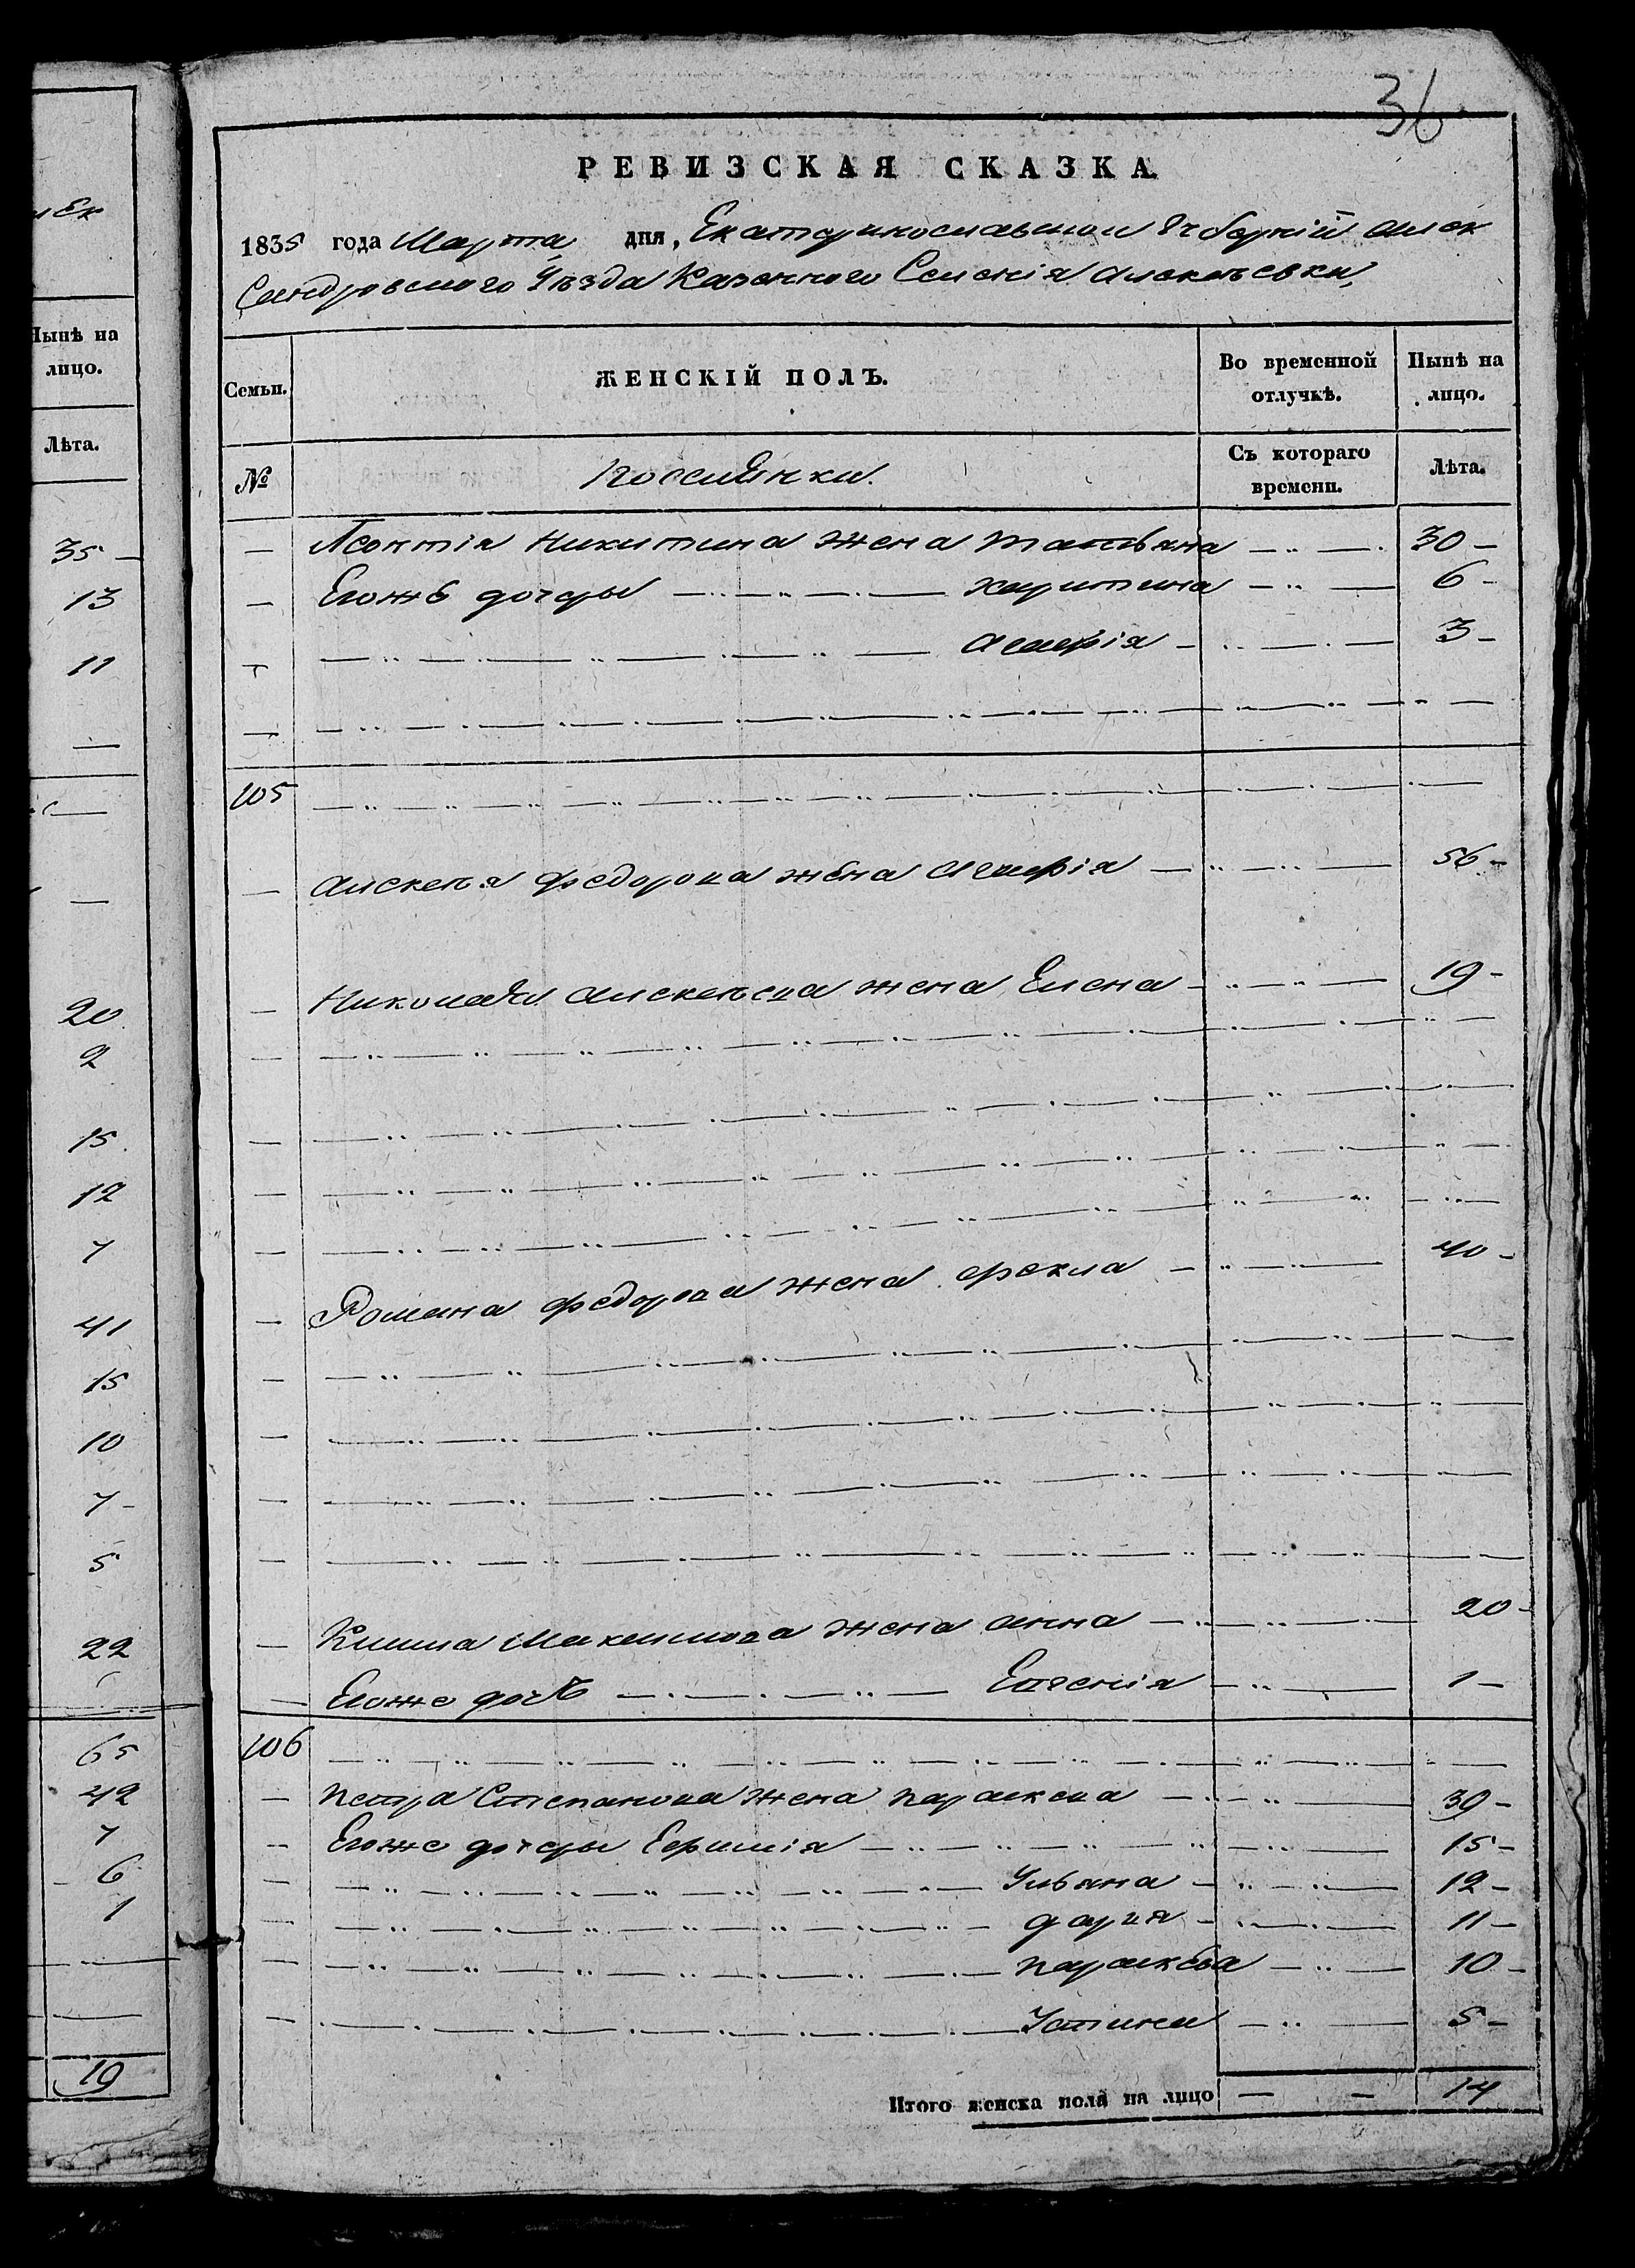 36
РЕВИЗСКАЯ СКАЗКА.
1835 года Марта дня, Екатеринославской Губерний Алек
Сандровского Уѣзда Казенного Селенія Алексѣевки,
Семьи. ЖЕНСКІЙ ПОЛЪ. Во временной отлучкѣ. Нынѣ на лицо.
№ Съ котораго времени. Лѣта.
— Леонтія Никитина жена Татьяна 30 —
— Егожъ дочеры Харитина 6 —
— 3 —
105
— Алексѣя Федорова жена 56 —
— Николая Алексѣева жена Елена 19 —
— Романа Федорова жена Фекла 40 —
— Клима Максимова жена Анна 20 —
— Егоже дочь Евгенія 1 —
106
— Петра Степанова жена Параскева 39 —
— Егоже дочеры Ефимія 15 —
Ульяна 12 —
Дария 11 —
Параскева 10 —
Устинья 5 —
Итого женска пола на лицо — — 14
Нынѣ на
лицо.
Лѣта.
35 —
13
11
20
2
15
12
7
41
15
10
7 —
5
22
65
42
7
6
1
19